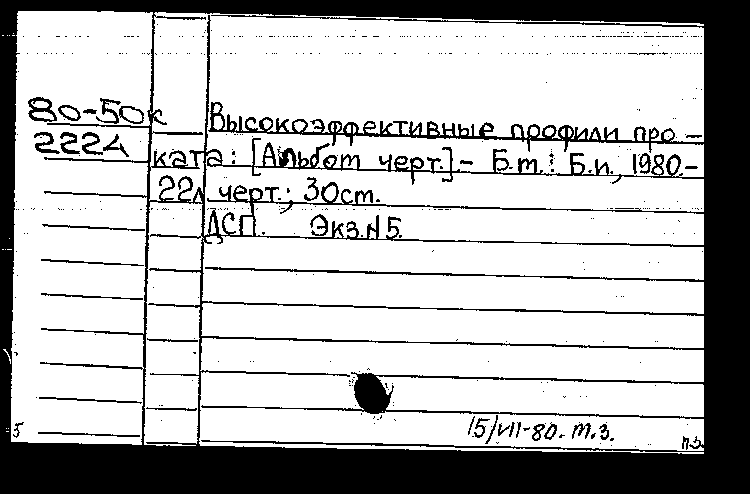 80-50к
2224
Высокоэффективные профили про-
ката: [Альбом черт.] - Б.т.: Б.и., 1980.-
22л черт.; 30см.
ДСП. Экз.N5.
15/VII-80. т.з.
п.з.
5